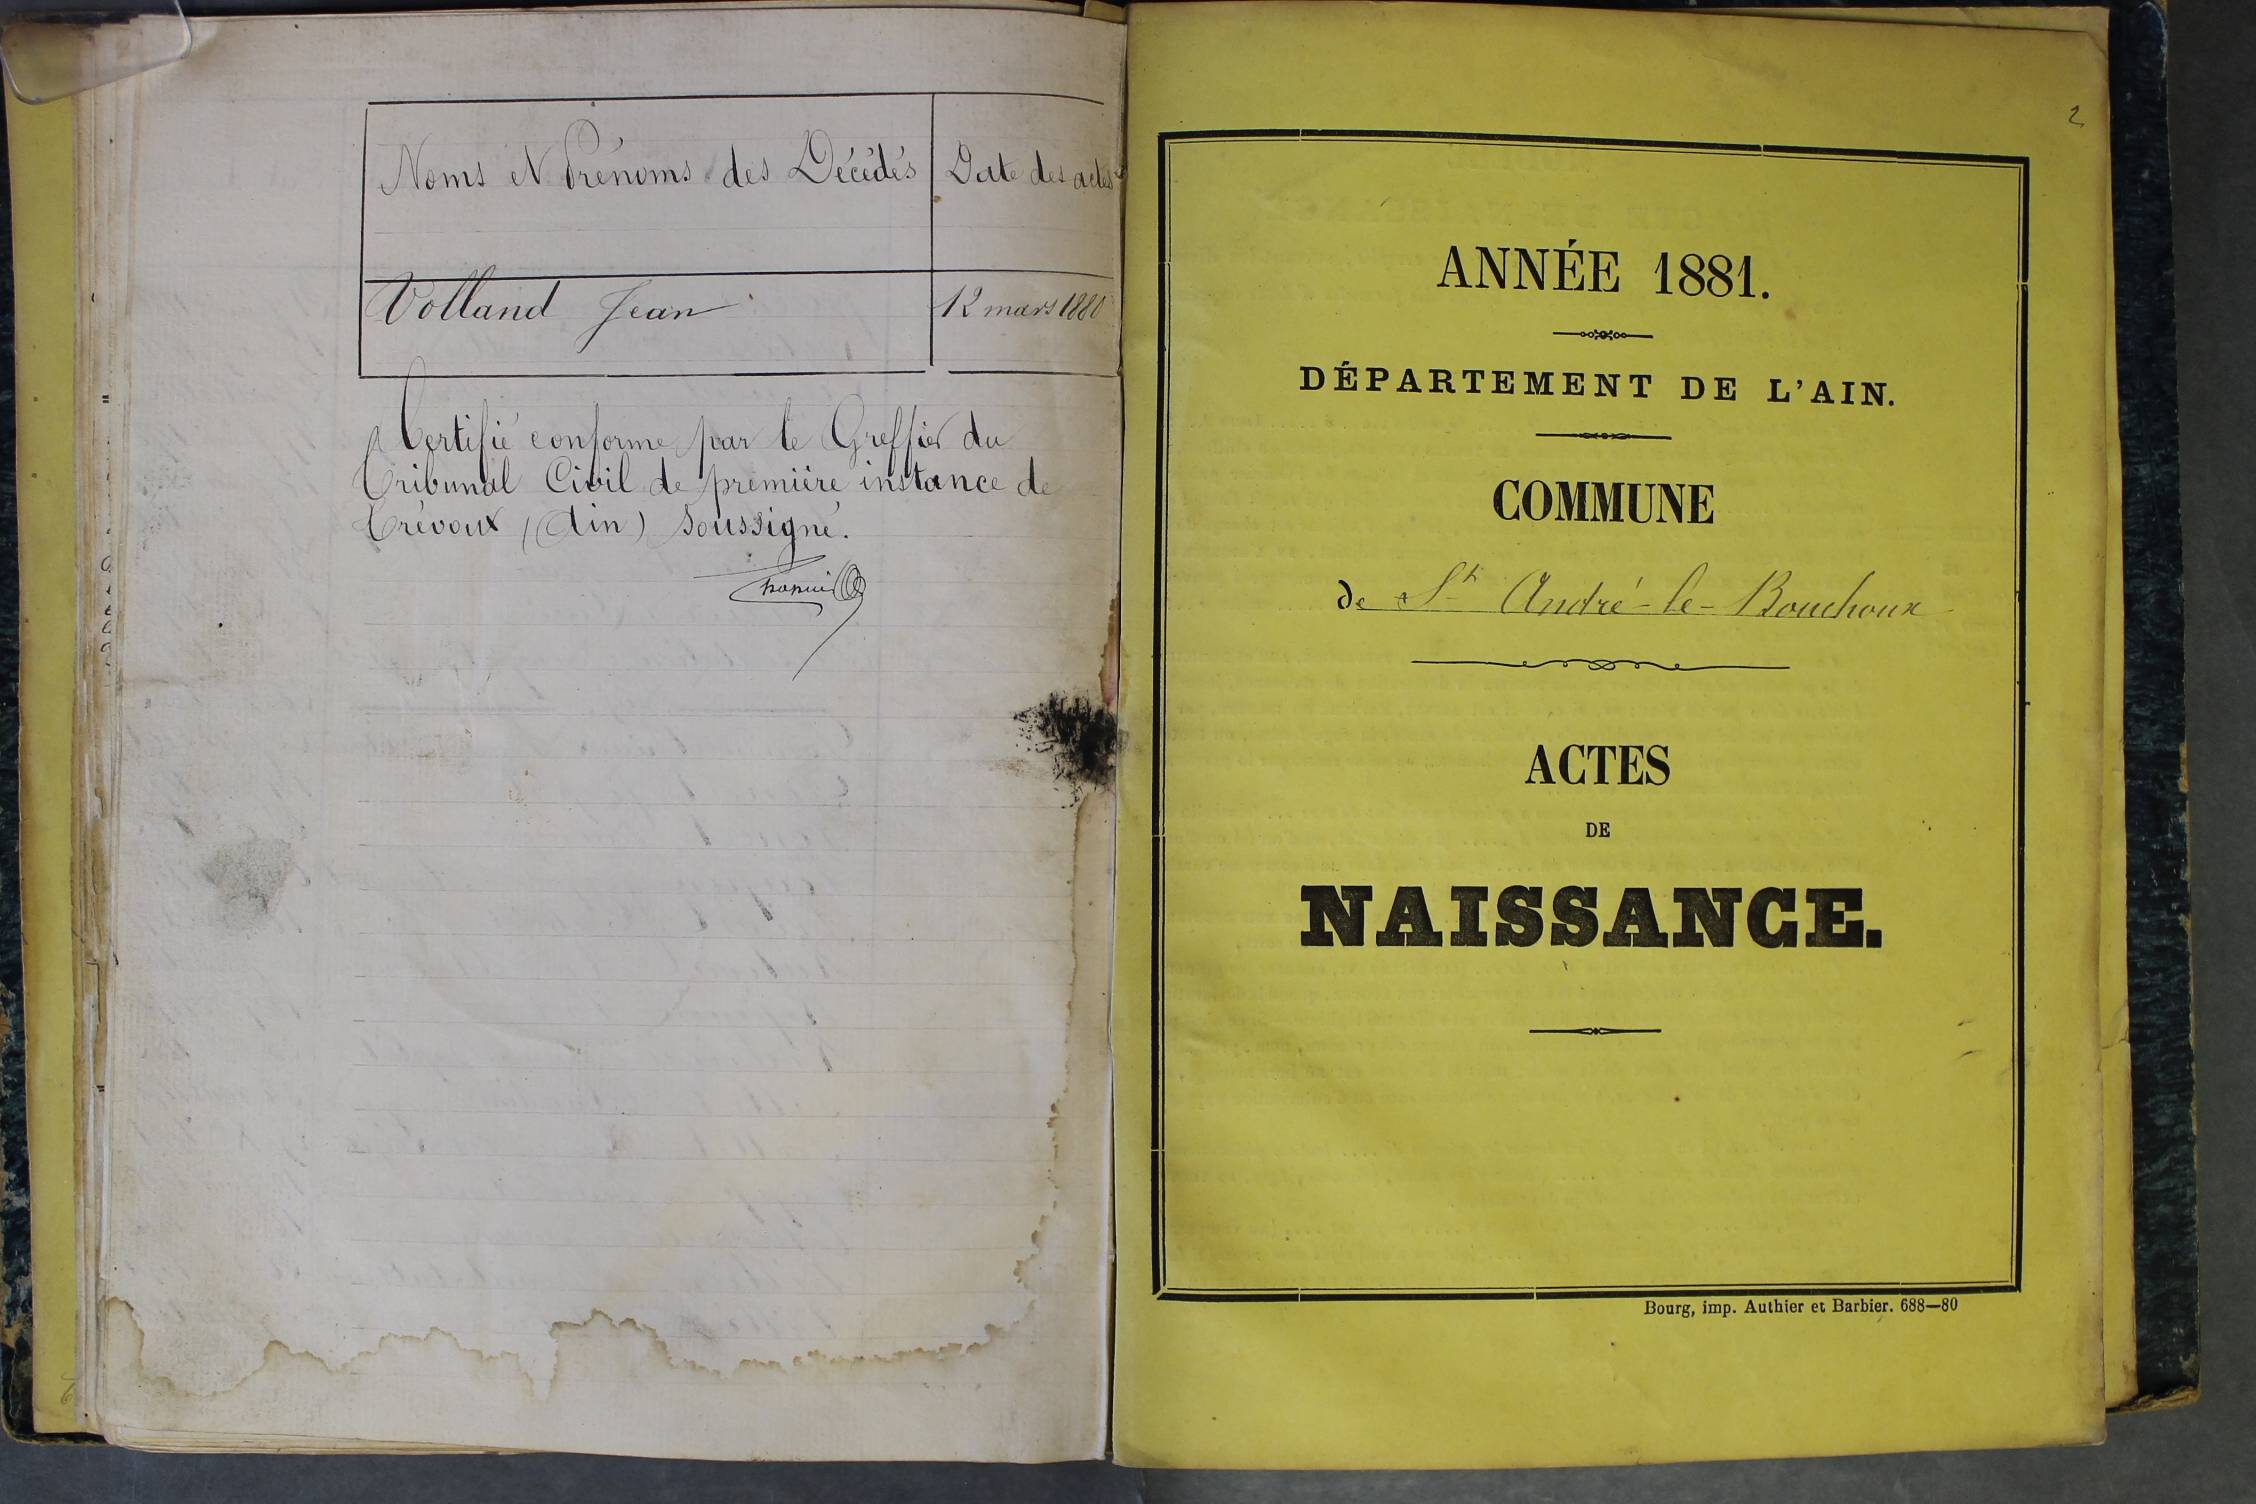 Noms et Prénoms des Décédés
Date des actes
Volland Jean
12 mars 1880
Certifié conforme par le Greffier du
Tribunal Civil de première instance de
Trévoux (Ain) soussigné.
2
ANNÉE 1881.
DÉPARTEMENT DE L'AIN.
COMMUNE
de St André-le-Bouchoux
ACTES
DE
NAISSANCE.
Bourg, imp. Authier et Barbier. 688—80